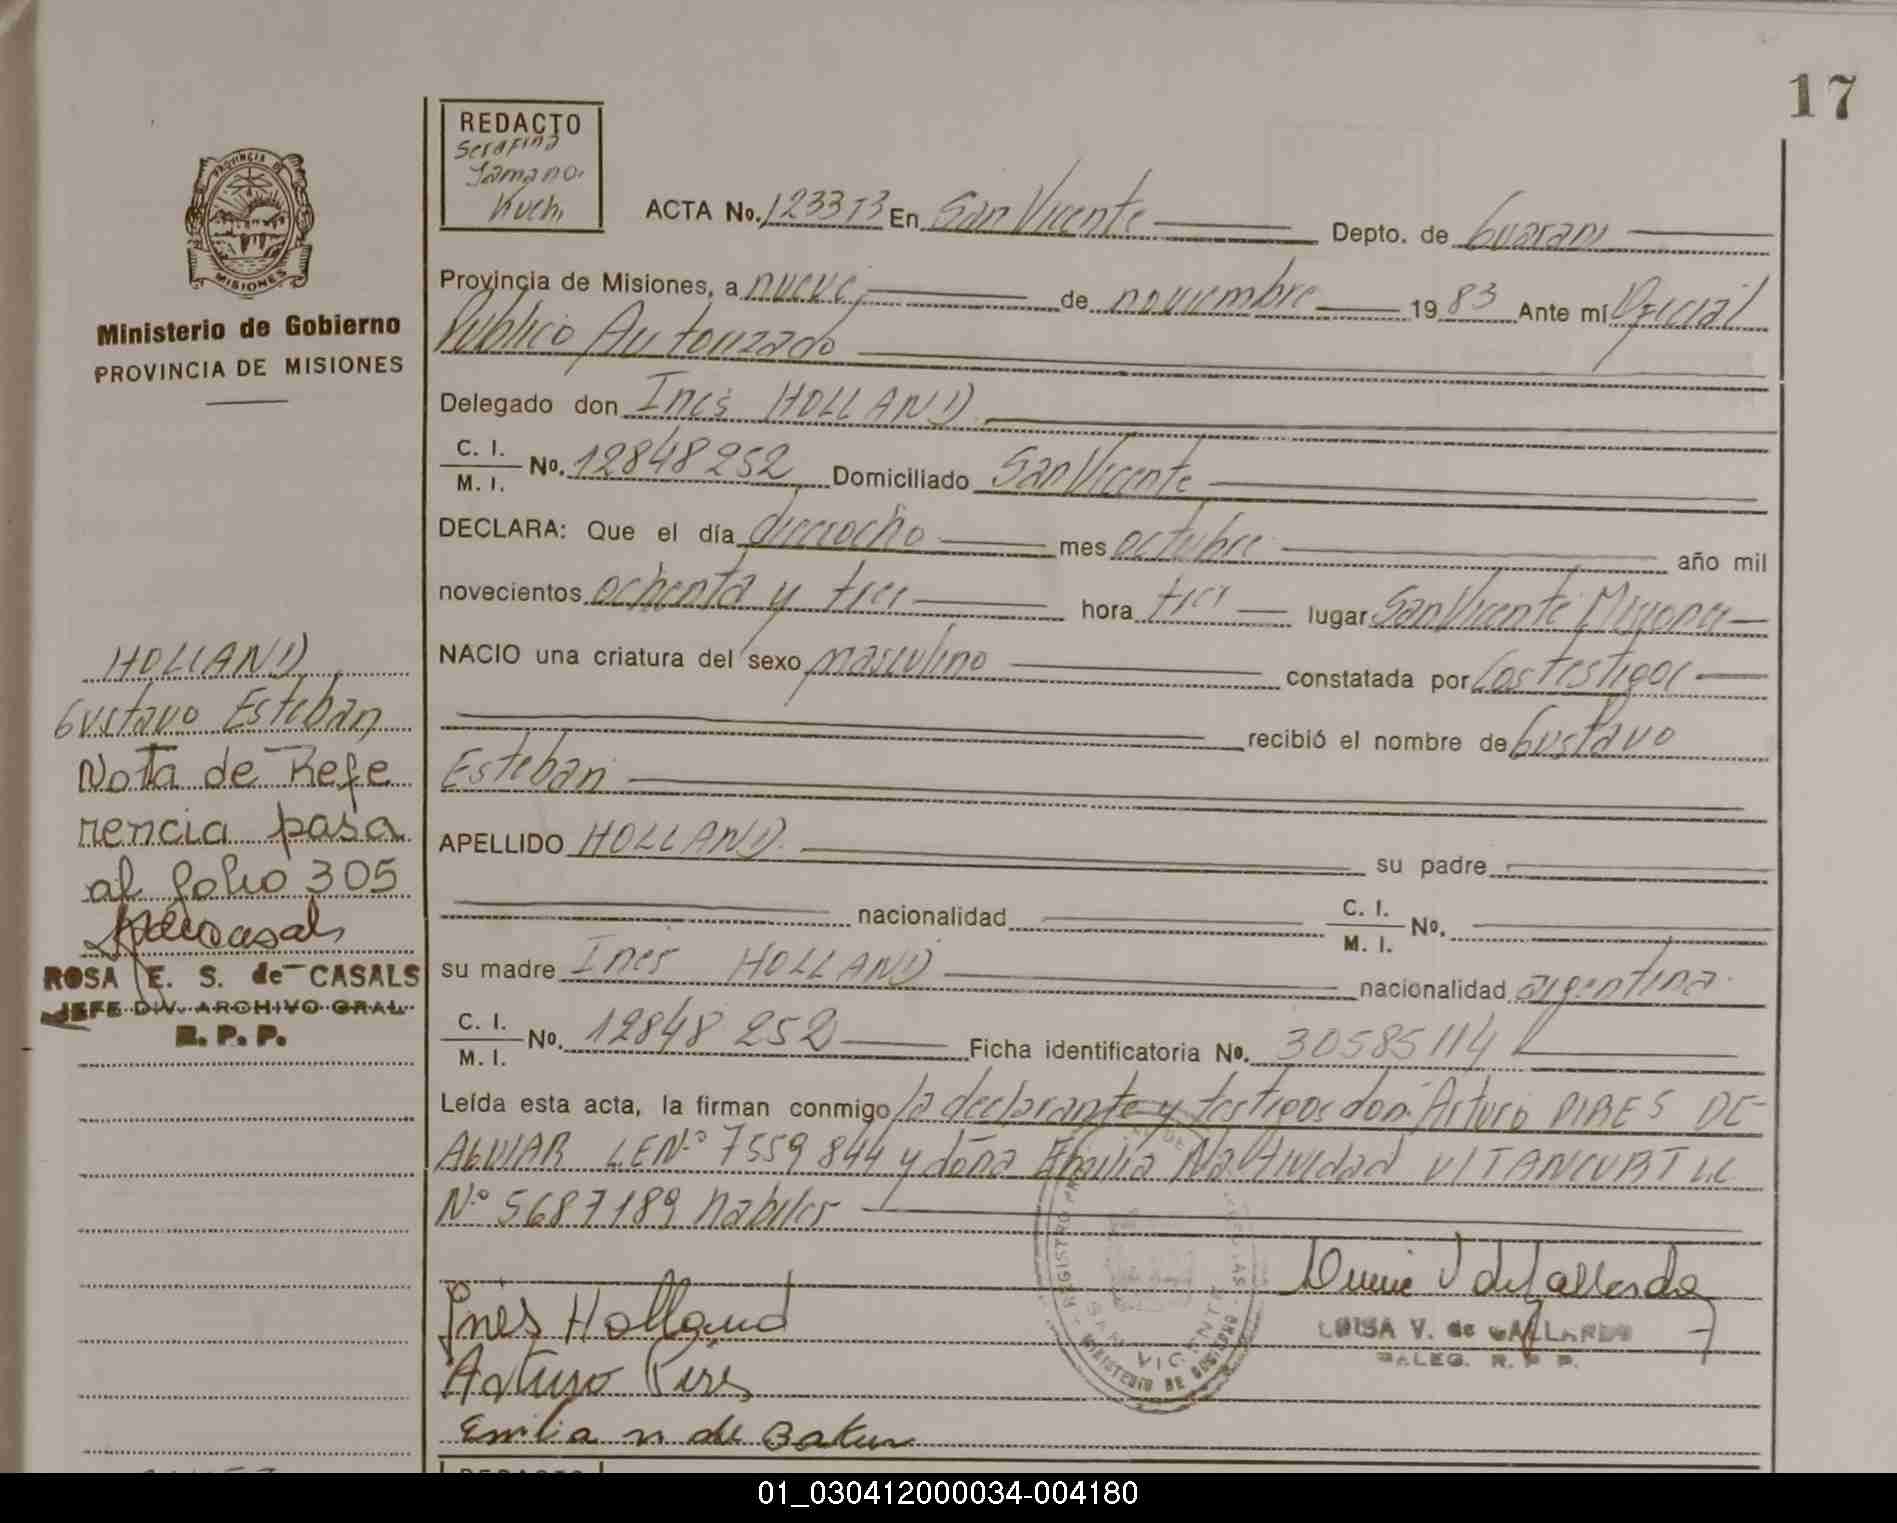 17
REDACTO
Serafina
Kuch
ACTA No. 123313 En San Vicente Depto. de Guarani
Provincia de Misiones, a nueve de noviembre 19 83 Ante mí Oficial
Publico Autorizado
Delegado don Ines HOLLAND
C. I.
M. I. No. 12848252 Domiciliado San Vicente
DECLARA: Que el día dieciocho mes octubre año mil
novecientos ochenta y tres hora tres lugar San Vicente Misiones
NACIO una criatura del sexo masculino constatada por Los testigos
recibió el nombre de Gustavo
Esteban
APELLIDO HOLLAND su padre
nacionalidad C. I.
M. I. No.
su madre Ines HOLLAND nacionalidad argentina
C. I.
M. I. No. 12848 252 Ficha identificatoria No. 30585114
Leída esta acta, la firman conmigo la declarante y testigos don Arturo PIRES DE
AGUIAR LEN° 7559844 y doña Emilia Natividad VITANCURT LC
N° 5687189 habiles
Inés Holland
Arturo Pires
Emilia n de Bakun
LUISA V. de GALLARDO
DELEG. R. P. P.
SAN VICENTE
MINISTERIO DE GOBIERNO
PROVINCIA DE
MISIONES
Ministerio de Gobierno
PROVINCIA DE MISIONES
HOLLAND
Gustavo Esteban
Nota de Refe
rencia pasa
al folio 305
ROSA E. S. de CASALS
JEFE DIV. ARCHIVO GRAL.
R. P. P.
01_030412000034-004180